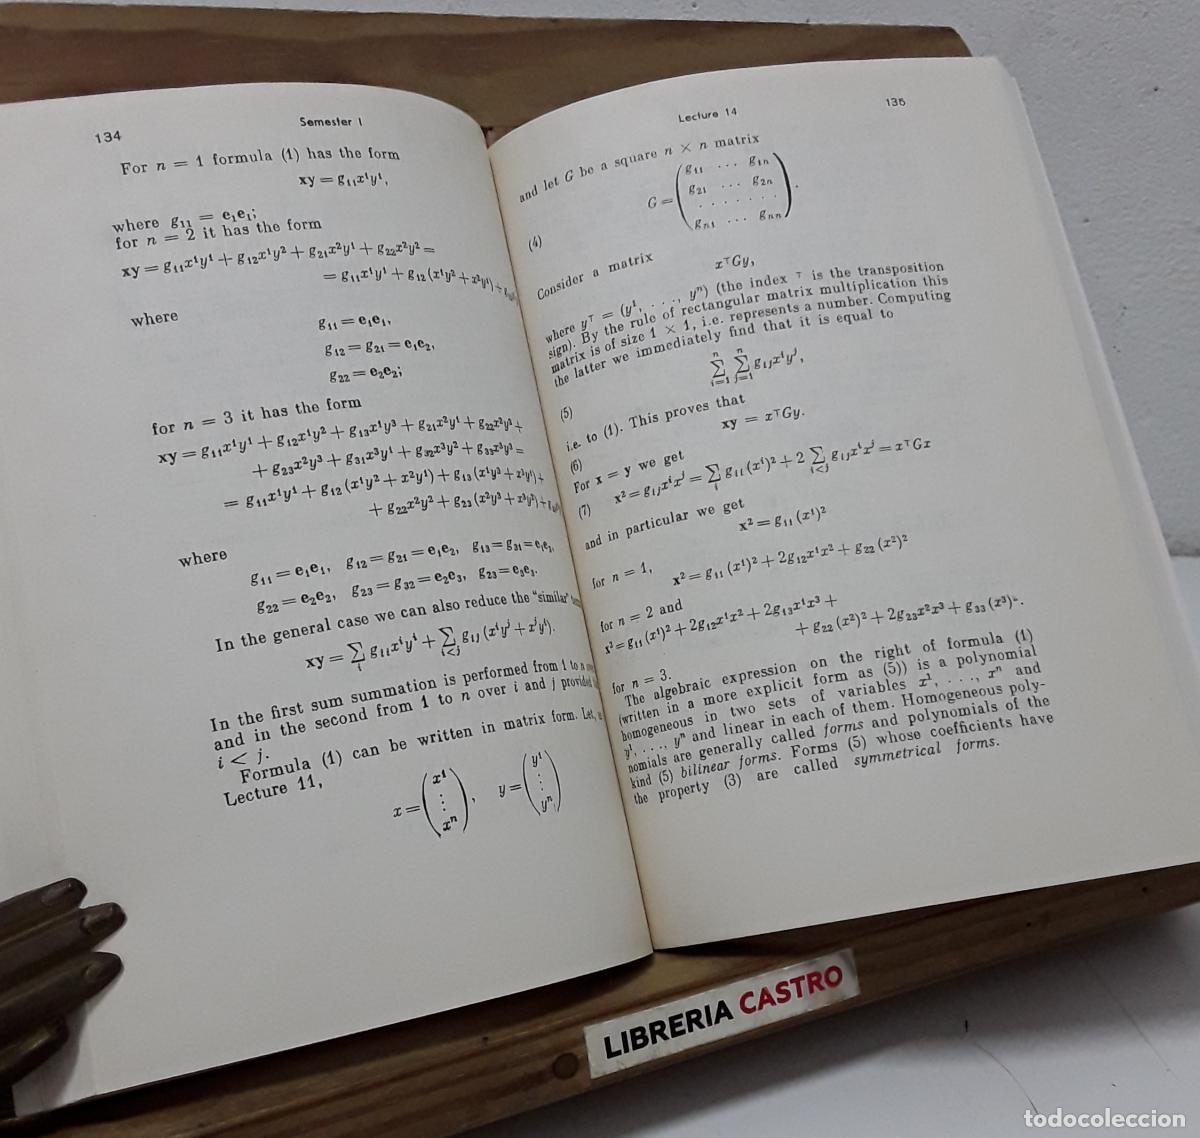 134
Semester I
For n = 1 formula (1) has the form
xy = g₁₁x¹y¹,
where g₁₁ = e₁e₁;
for n = 2 it has the form
xy = g₁₁x¹y¹ + g₁₂x¹y² + g₂₁x²y¹ + g₂₂x²y² =
= g₁₁x¹y¹ + g₁₂(x¹y² + x²y¹) +
where
g₁₁ = e₁e₁,
g₁₂ = g₂₁ = e₁e₂,
g₂₂ = e₂e₂;
for n = 3 it has the form
xy = g₁₁x¹y¹ + g₁₂x¹y² + g₁₃x¹y³ + g₂₁x²y¹ + g₂₂x²y² +
+ g₂₃x²y³ + g₃₁x³y¹ + g₃₂x³y² + g₃₃x³y³ =
= g₁₁x¹y¹ + g₁₂(x¹y² + x²y¹) + g₁₃(x¹y³ + x³y¹) +
+ g₂₂x²y² + g₂₃(x²y³ + x³y²) +
where
g₁₁ = e₁e₁, g₁₂ = g₂₁ = e₁e₂, g₁₃ = g₃₁ = e₁e₃,
g₂₂ = e₂e₂, g₂₃ = g₃₂ = e₂e₃, g₂₃ = e₃e₃.
In the general case we can also reduce the "similar"
xy = ∑ᵢ gᵢᵢxⁱyⁱ + ∑ᵢ<ⱼ gᵢⱼ(xⁱyʲ + xʲyⁱ).
In the first sum summation is performed from 1 to n
and in the second from 1 to n over i and j provided
i < j.
Formula (1) can be written in matrix form. Let,
Lecture 11,
x = (x¹ ⋮ xⁿ), y = (y¹ ⋮ yⁿ)
Lecture 14
135
and let G be a square n × n matrix
(4) G = (g₁₁ ... g₁ₙ
g₂₁ ... g₂ₙ
. . . . . . .
gₙ₁ ... gₙₙ).
Consider a matrix
xᵀGy,
where yᵀ = (y¹, . . ., yⁿ) (the index ᵀ is the transposition
sign). By the rule of rectangular matrix multiplication this
matrix is of size 1 × 1, i.e. represents a number. Computing
the latter we immediately find that it is equal to
(5) ∑ⁿᵢ₌₁ ∑ⁿⱼ₌₁ gᵢⱼxⁱyʲ,
i.e. to (1). This proves that
(6) xy = xᵀGy.
For x = y we get
(7) x² = gᵢⱼxⁱxʲ = ∑ᵢ gᵢᵢ(xⁱ)² + 2 ∑ᵢ<ⱼ gᵢⱼxⁱxʲ = xᵀGx
and in particular we get
x² = g₁₁(x¹)²
for n = 1,
x² = g₁₁(x¹)² + 2g₁₂x¹x² + g₂₂(x²)²
for n = 2 and
x² = g₁₁(x¹)² + 2g₁₂x¹x² + 2g₁₃x¹x³ +
+ g₂₂(x²)² + 2g₂₃x²x³ + g₃₃(x³)².
for n = 3.
The algebraic expression on the right of formula (1)
(written in a more explicit form as (5)) is a polynomial
homogeneous in two sets of variables x¹, . . ., xⁿ and
y¹, . . ., yⁿ and linear in each of them. Homogeneous poly-
nomials are generally called forms and polynomials of the
kind (5) bilinear forms. Forms (5) whose coefficients have
the property (3) are called symmetrical forms.
LIBRERIA CASTRO
todocoleccion